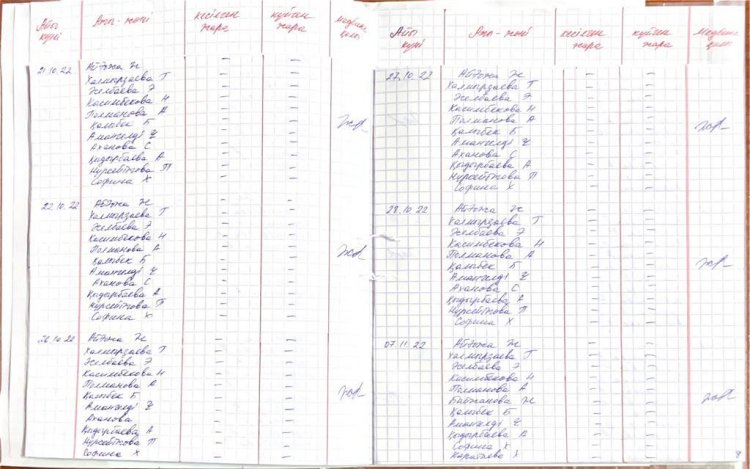 Айы күні Аты-жөні кесілген жара күйген жара Медбике қолы
21.10.22 Абдожа Ж — —
Халмырзаева Т — —
Желбаева Э — —
Касимбекова Н — —
Полманова А — —
Қалыбек Б — —
Амангелді Ұ — —
Аханова С — —
Қыдырбаева А — —
Нурсейтова П — —
Софина Х — —
22.10.22 Абдожа Ж — —
Халмырзаева Т — —
Желбаева Э — —
Касимбекова Н — —
Полманова А — —
Қалыбек Б — —
Амангелді Ұ — —
Аханова С — —
Қыдырбаева А — —
Нурсейтова П — —
Софина Х — —
26.10.22 Абдожа Ж — —
Халмырзаева Т — —
Желбаева Э — —
Касимбекова Н — —
Полманова А — —
Қалыбек Б — —
Амангелді Ұ — —
Аханова — —
Қыдырбаева А — —
Нурсейтова П — —
Софина Х — —
Айы күні Аты-жөні кесілген жара күйген жара Медбике қолы
27.10.22 Абдожа Ж — —
Халмырзаева Т — —
Желбаева Э — —
Касимбекова Н — —
Полманова А — —
Қалыбек Б — —
Амангелді Ұ — —
Аханова С — —
Қыдырбаева А — —
Нурсейтова П — —
Софина Х — —
28.10.22 Абдожа Ж — —
Халмырзаева Т — —
Желбаева Э — —
Касимбекова Н — —
Полманова А — —
Қалыбек Б — —
Амангелді Ұ — —
Аханова С — —
Қыдырбаева А — —
Нурсейтова П — —
Софина Х — —
07.11.22 Абдожа Ж — —
Халмырзаева Т — —
Желбаева Э — —
Касимбекова Н — —
Полманова А — —
Бабжанова Ж — —
Қалыбек Б — —
Амангелді Ұ — —
Қыдырбаева А — —
Софина Х — —
Каратаева Х — —